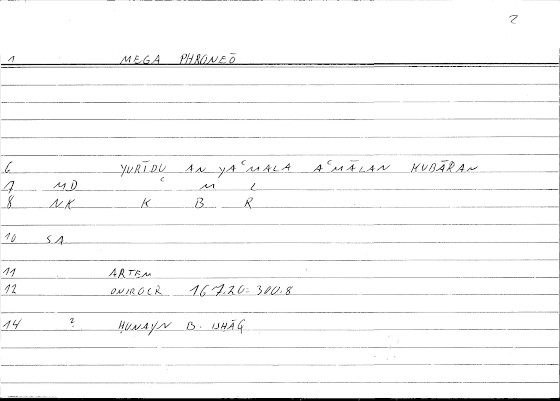 2
1 MEGA PHRONEŌ
6 YURĪDU AN YAʿMALA AʿMĀLAN KUBĀRAN
7 MD ʿ M L
8 NK K B R
10 SA
11 ARTEM
12 ONIROCR 167.20 = 300.8
14 ? ḤUNAYN B. ISḤĀQ